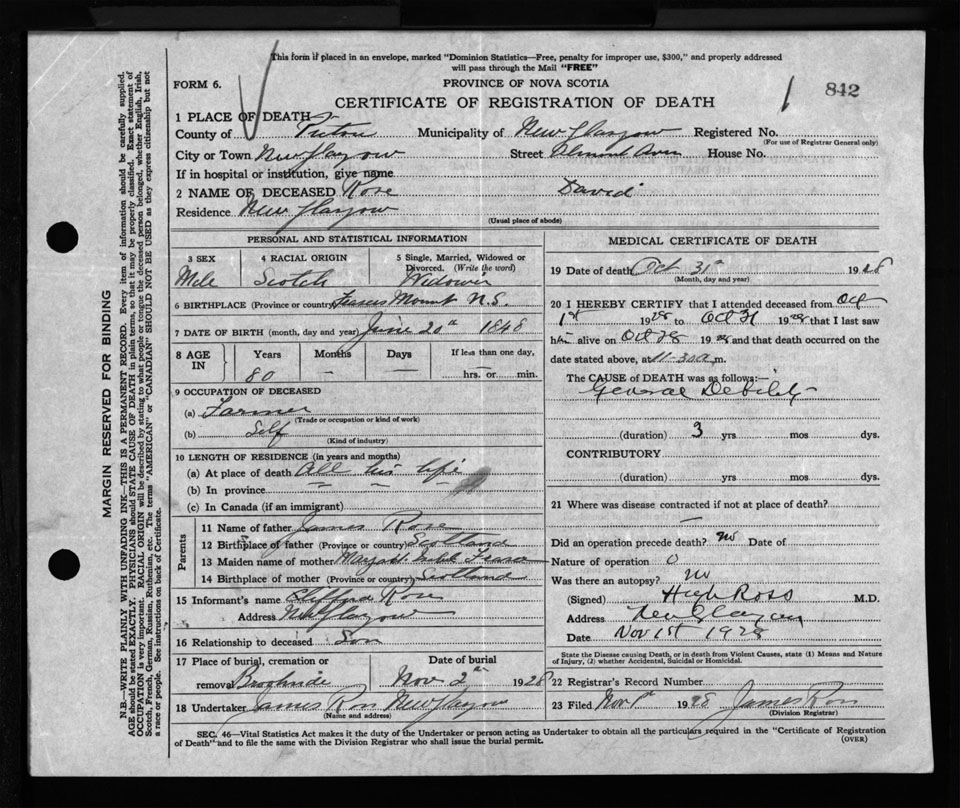 This form if placed in an envelope, marked "Dominion Statistics—Free, penalty for improper use, $300," and properly addressed
will pass through the Mail "FREE"
FORM 6. PROVINCE OF NOVA SCOTIA
CERTIFICATE OF REGISTRATION OF DEATH 1 842
1 PLACE OF DEATH
County of Pictou Municipality of New Glasgow Registered No.
(For use of Registrar General only)
City or Town New Glasgow Street House No.
If in hospital or institution, give name
2 NAME OF DECEASED Rose David
Residence New Glasgow
(Usual place of abode)
PERSONAL AND STATISTICAL INFORMATION
3 SEX 4 RACIAL ORIGIN 5 Single, Married, Widowed or Divorced. (Write the word)
Male Scotch Widower
6 BIRTHPLACE (Province or country) Frasers Mount N.S.
7 DATE OF BIRTH (month, day and year) June 20th 1848
8 AGE IN Years Months Days If less than one day,
80 – – hrs. or min.
9 OCCUPATION OF DECEASED
(a) Farmer
(Trade or occupation or kind of work)
(b) Self
(Kind of industry)
10 LENGTH OF RESIDENCE (in years and months)
(a) At place of death All his life
(b) In province
(c) In Canada (if an immigrant)
Parents
11 Name of father James Rose
12 Birthplace of father (Province or country) Scotland
13 Maiden name of mother Fraser
14 Birthplace of mother (Province or country) Scotland
15 Informant's name Clifford Rose
Address New Glasgow
16 Relationship to deceased Son
17 Place of burial, cremation or removal Date of burial
Nov 2nd 1928
18 Undertaker James Ross New Glasgow
(Name and address)
MEDICAL CERTIFICATE OF DEATH
19 Date of death Oct 31st 1928
(Month, day and year)
20 I HEREBY CERTIFY that I attended deceased from Oct
1st 1928 to Oct 31 1928 that I last saw
him alive on Oct 28 1928 and that death occurred on the
date stated above, at 11-30 a.m.
The CAUSE of DEATH was as follows:—
General Debility
(duration) 3 yrs. mos. dys.
CONTRIBUTORY
(duration) yrs. mos. dys.
21 Where was disease contracted if not at place of death?
–
Did an operation precede death? no Date of
Nature of operation 0
Was there an autopsy? no
(Signed) Hugh Ross M.D.
Address New Glasgow
Date Nov 1st 1928
State the Disease causing Death, or in death from Violent Causes, state (1) Means and Nature
of Injury, (2) whether Accidental, Suicidal or Homicidal.
22 Registrar's Record Number
23 Filed Nov 1st 1928 James Ross
(Division Registrar)
SEC. 46—Vital Statistics Act makes it the duty of the Undertaker or person acting as Undertaker to obtain all the particulars required in the "Certificate of Registration
of Death" and to file the same with the Division Registrar who shall issue the burial permit. (OVER)
MARGIN RESERVED FOR BINDING
N.B.—WRITE PLAINLY WITH UNFADING INK—THIS IS A PERMANENT RECORD. Every item of information should be carefully supplied.
AGE should be stated EXACTLY. PHYSICIANS should STATE CAUSE OF DEATH in plain terms, so that it may be properly classified. Exact statement of
OCCUPATION is very important. RACIAL ORIGIN will be described by stating to what people or tongue the deceased person belonged, whether English, Irish,
Scotch, French, German, Russian, Ruthenian, etc. The terms "AMERICAN" or "CANADIAN" SHOULD NOT BE USED as they express citizenship but not
a race or people. See instructions on back of Certificate.